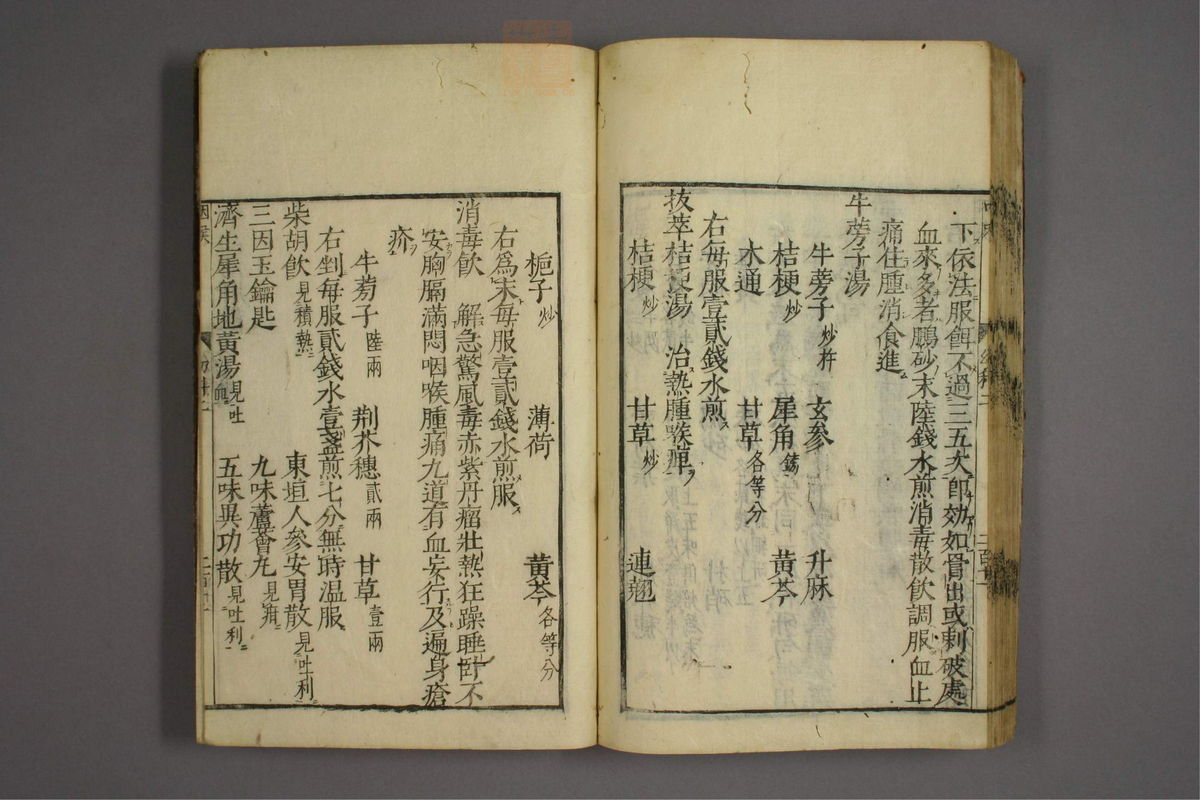 下依法服餌不過三五次卽効如骨出或刺破處
血來多者鵬砂末陸錢水煎消毒散飲調服血止
痛住腫消食進
牛蒡子湯
牛蒡子炒杵 玄參 升麻
桔梗炒 犀角鎊 黃芩
木通 甘草各等分
右每服壹貳錢水煎
拔萃桔梗湯 治熱腫喉痺
桔梗炒 甘草炒 連翹
梔子炒 薄荷 黃芩各等分
右爲末每服壹貳錢水煎服
消毒飲 解急驚風毒赤紫丹瘤壯熱狂躁睡卧不
安胸膈滿悶咽喉腫痛九道有血妄行及遍身瘡
疥
牛蒡子陸兩 荆芥穗貳兩 甘草壹兩
右剉每服貳錢水壹盞煎七分無時温服
柴胡飮見積熱 東垣人參安胃散見吐利
三因玉鑰匙 九味蘆薈丸見疳
濟生犀角地黃湯見吐血 五味異功散見吐利